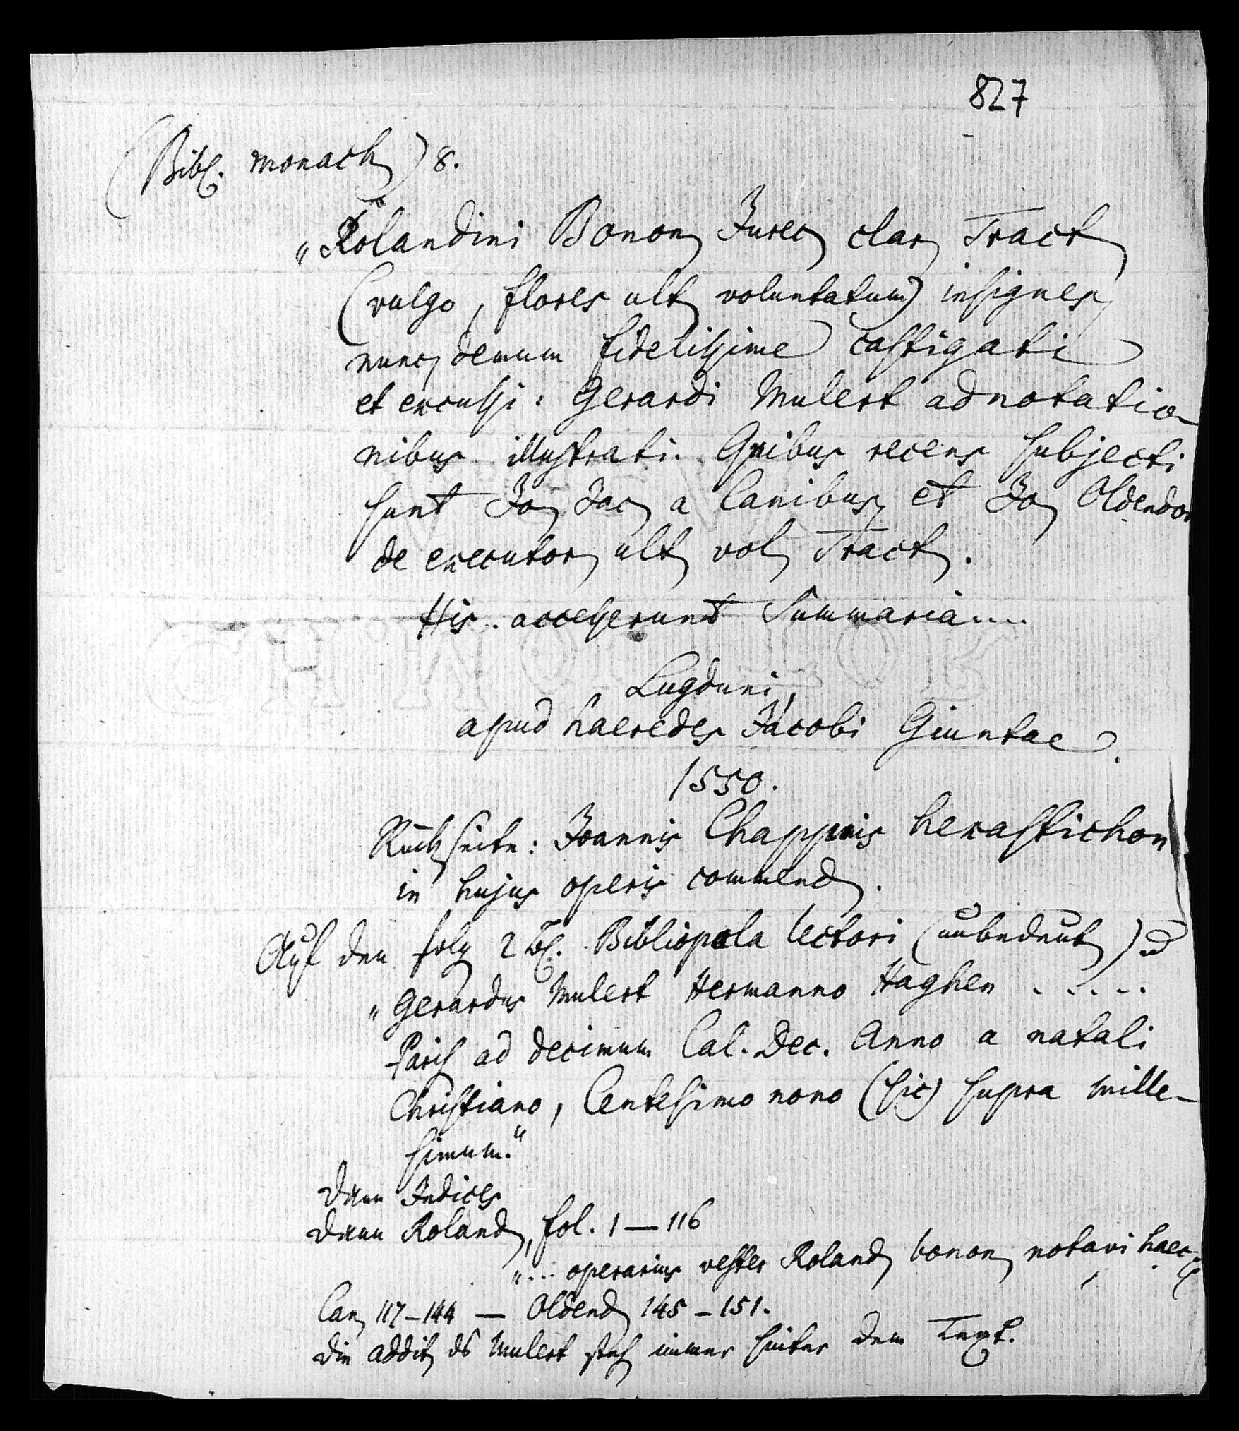 827
(Bibl. monach) 8.
„Rolandini Bonon Jurec clar Tract
(vulgo, flores ult voluntatum) insignes,
nunc demum fidelissime castigati
et excussi: Gerardi Mulert adnotatio-
nibus illustrati. Quibus recens subjecti
sunt Jo Jac a Canibus, et Jo Oldendor
de executor ult vol Tract.
His accesserunt Summaria....
Lugduni,
apud haeredes Jacobi Giuntae.
1550.
Rückseite: Joannis Chappuis hexastichon
in hujus operis commend.
Auf den folg 2 Bl. Bibliopola lectori (unbedeut) u
„Gerardus Mulert Hermanno Haghen .....
Paris ad decimum Cal. Dec. Anno a natali
Christiano, Centesimo nono (sic) supra mille-
simum.“
Dann Indices
Dann Roland, fol. 1—116
„... operarius vester Roland bonon notavi haec
Can 117-144 — Oldend 145-151.
Die addit ds Mulert steh immer hinter dem Text.